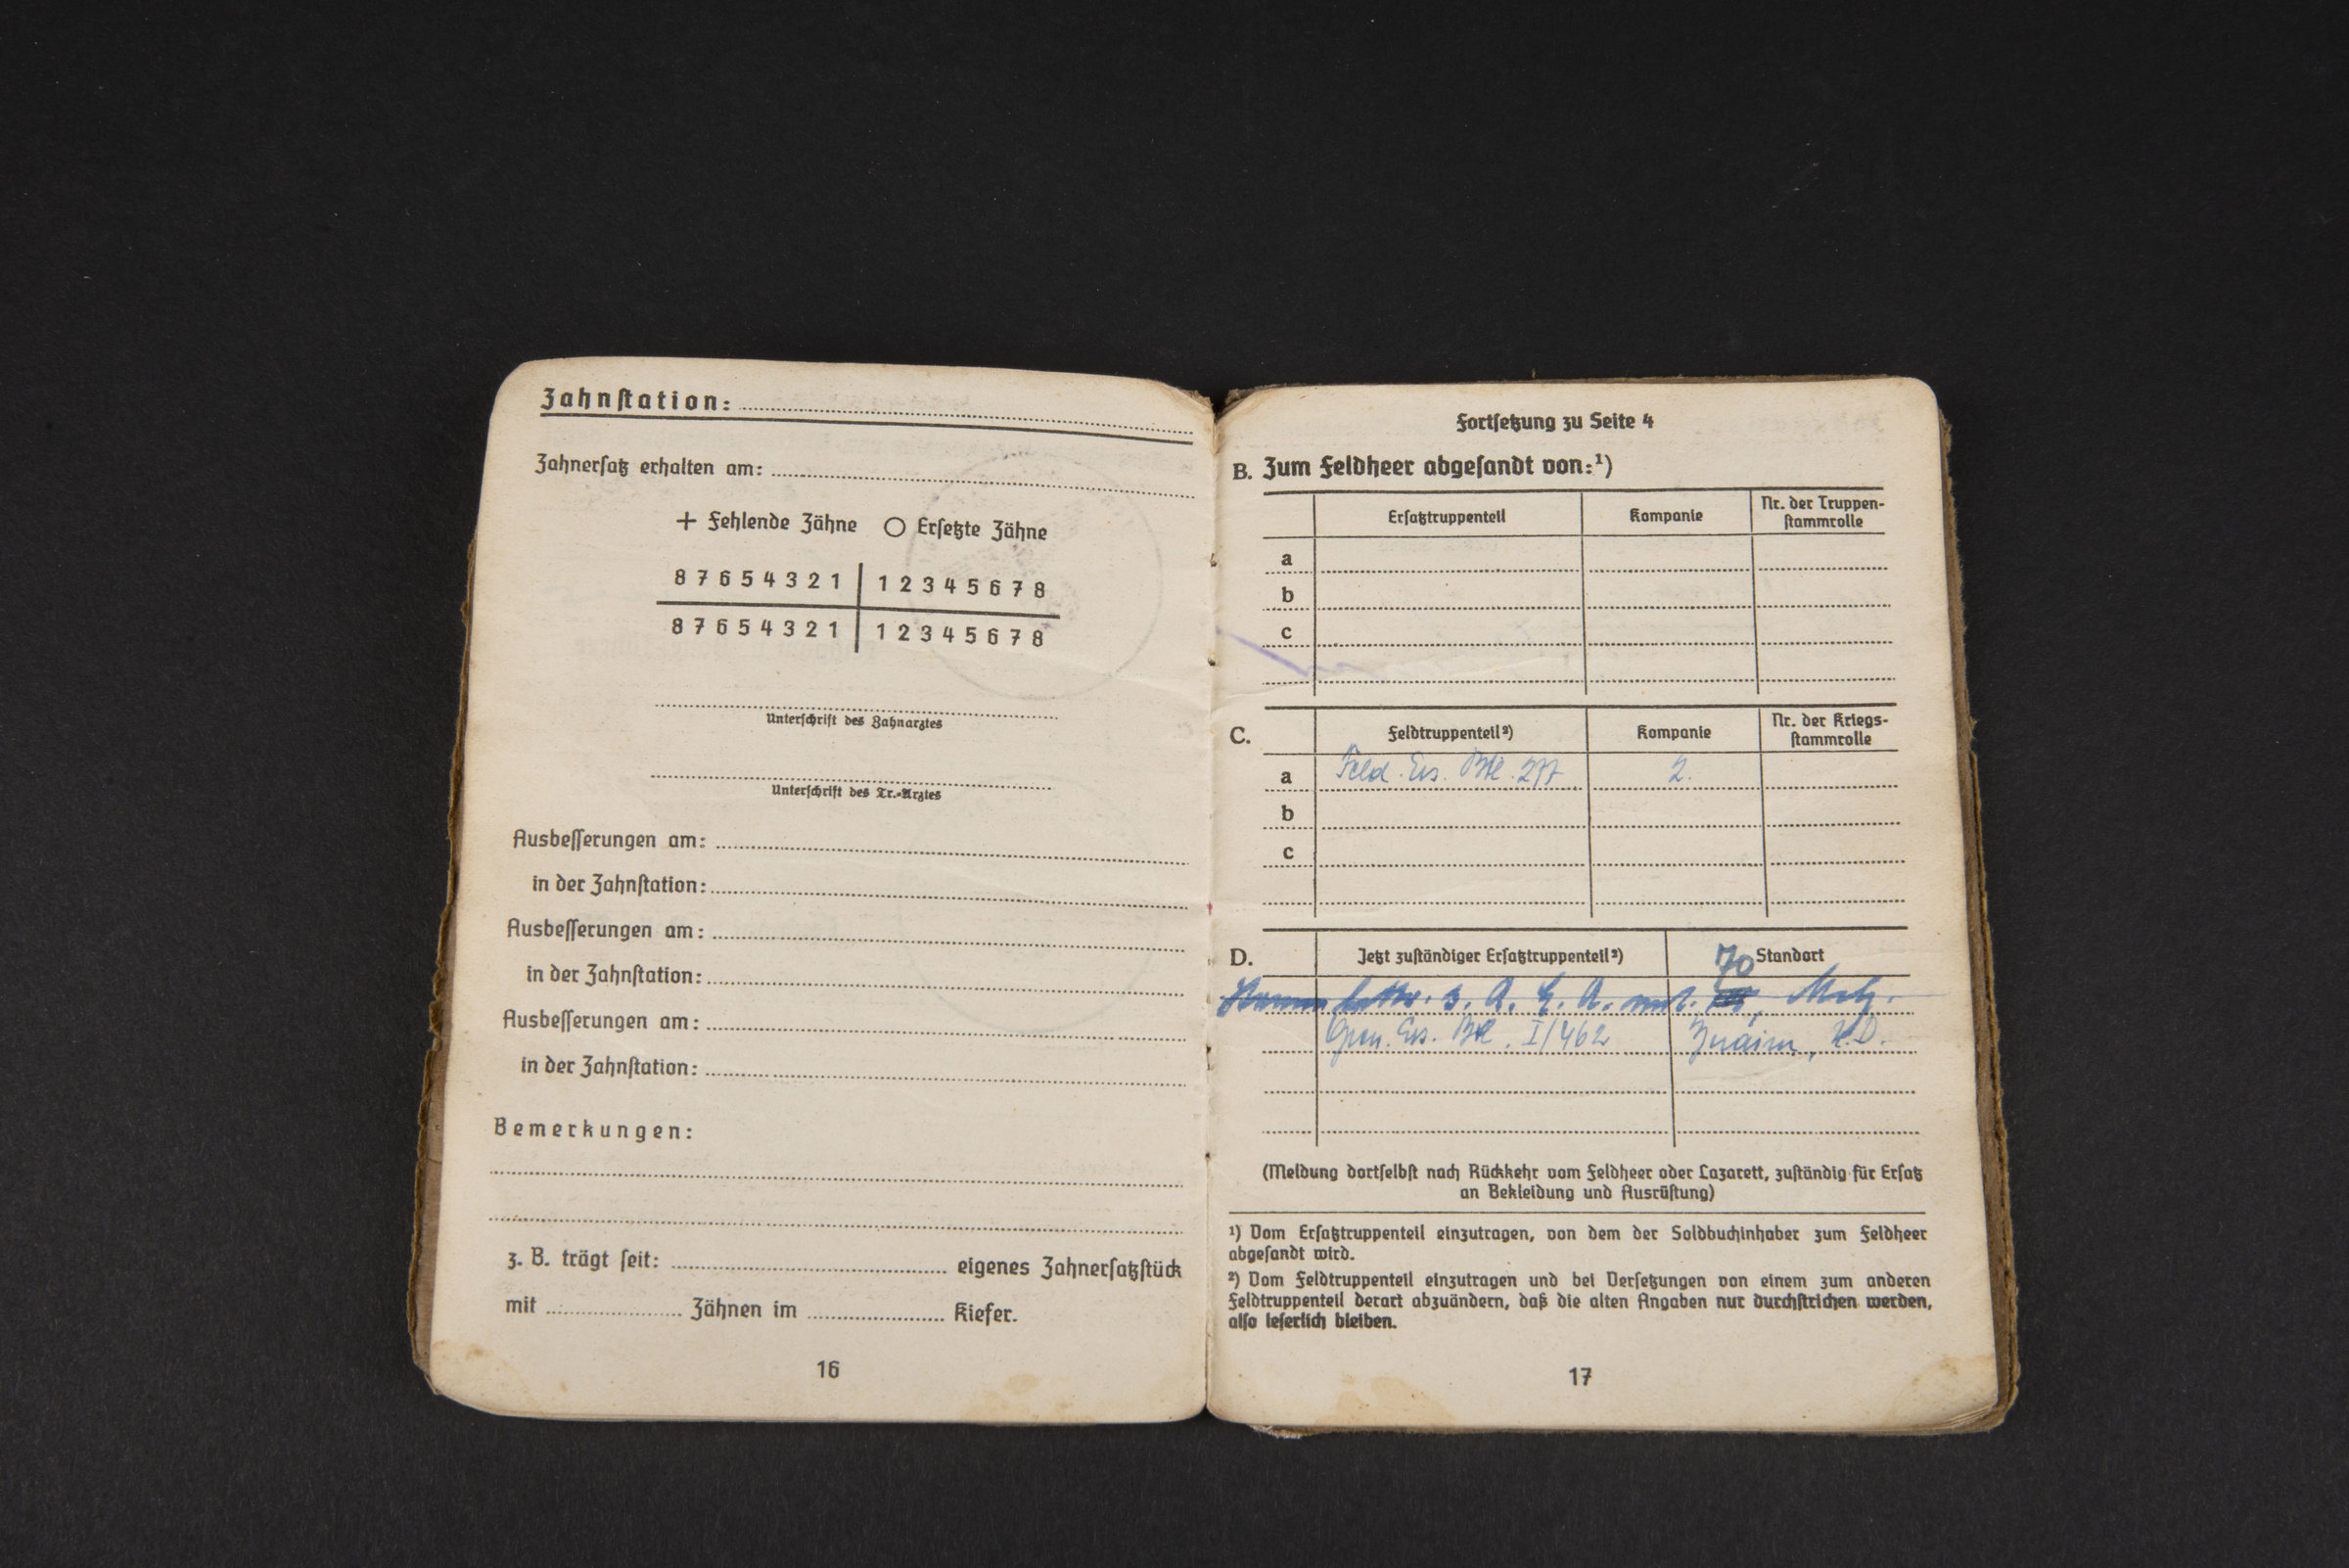 Zahnstation:
Zahnersatz erhalten am:
+ Fehlende Zähne ○ Ersetzte Zähne
8 7 6 5 4 3 2 1 | 1 2 3 4 5 6 7 8
8 7 6 5 4 3 2 1 | 1 2 3 4 5 6 7 8
Unterschrift des Zahnarztes
Unterschrift des Tr.-Arztes
Ausbesserungen am:
in der Zahnstation:
Ausbesserungen am:
in der Zahnstation:
Ausbesserungen am:
in der Zahnstation:
Bemerkungen:
z. B. trägt seit: eigenes Zahnersatzstück
mit Zähnen im Kiefer.
16
Fortsetzung zu Seite 4
B. Zum Feldheer abgesandt von:¹)
Ersatztruppenteil Kompanie Nr. der Truppen-
stammrolle
a
b
c
C. Feldtruppenteil²) Kompanie Nr. der Kriegs-
stammrolle
a Feld. Ers. Btl. 277 2.
b
c
D. Jetzt zuständiger Ersatztruppenteil²) Standort
70
3. A. E. A. mot. Metz.
Gren. Ers. Btl. I/462 Znaim, N.D.
(Meldung dortselbst nach Rückkehr vom Feldheer oder Lazarett, zuständig für Ersatz
an Bekleidung und Ausrüstung)
¹) Vom Ersatztruppenteil einzutragen, von dem der Soldbuchinhaber zum Feldheer
abgesandt wird.
²) Vom Feldtruppenteil einzutragen und bei Versetzungen von einem zum anderen
Feldtruppenteil derart abzuändern, daß die alten Angaben nur durchstrichen werden,
also leserlich bleiben.
17